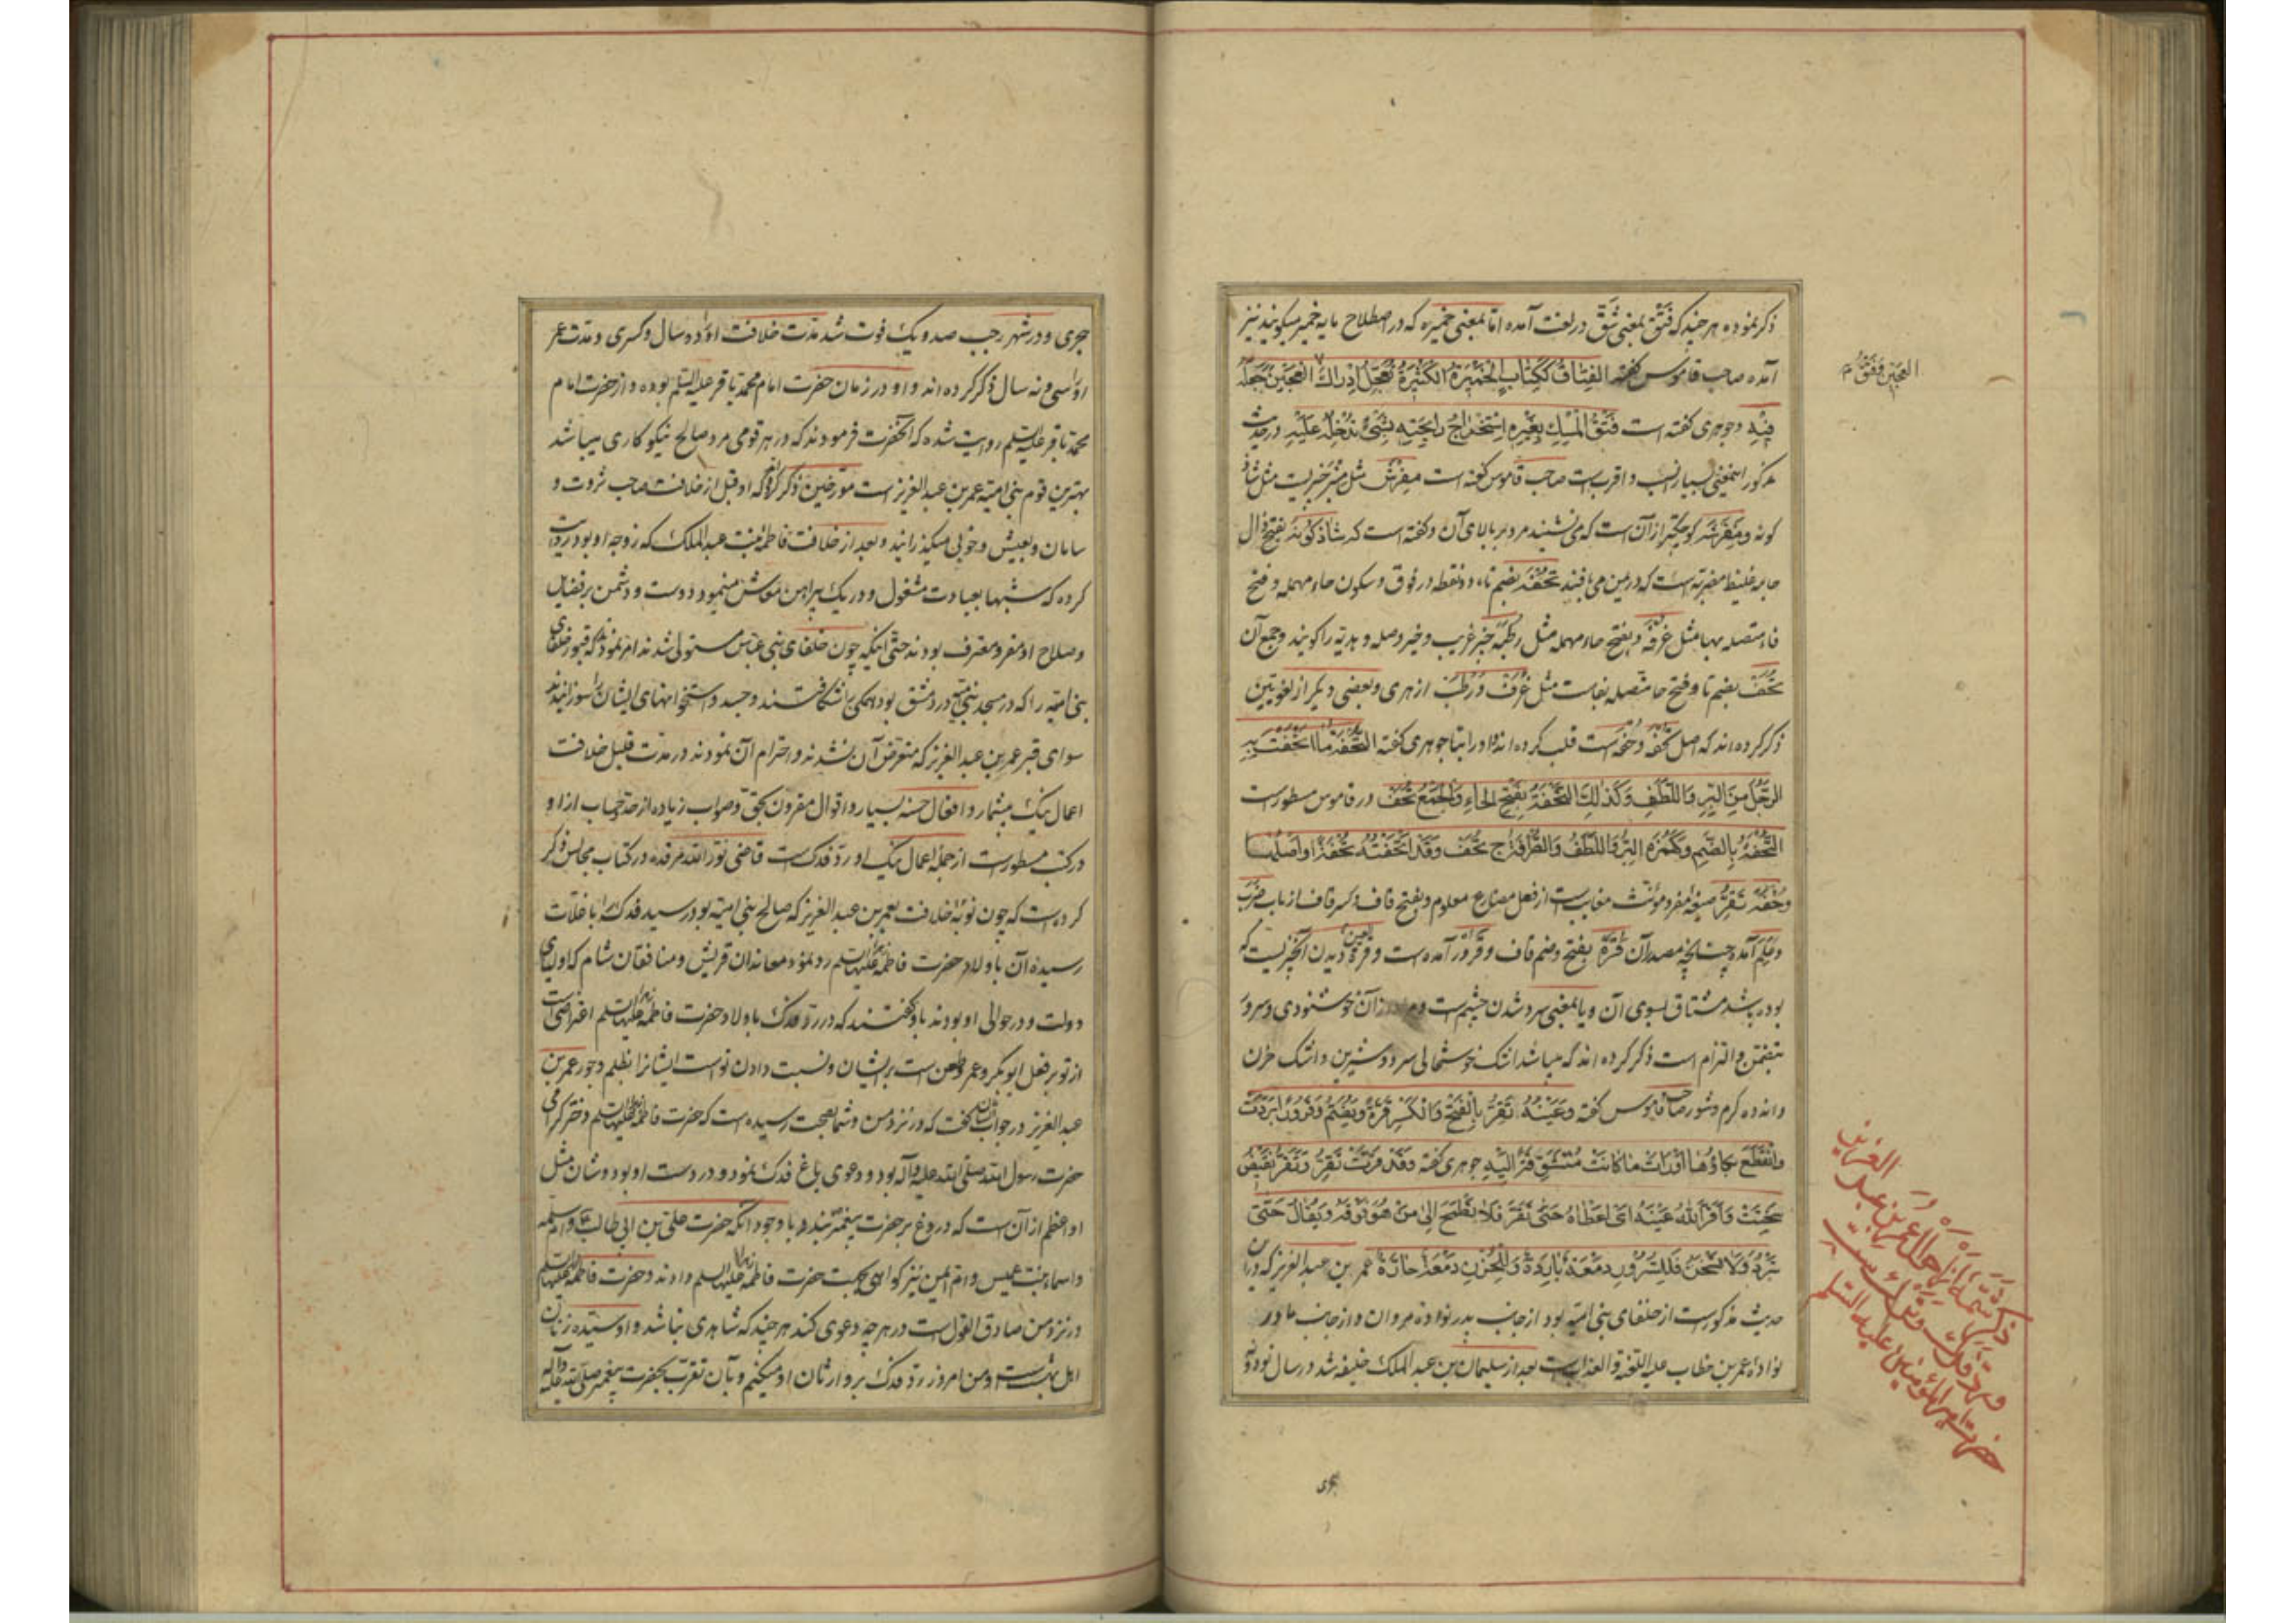 ذکر نموده هر چند که فتق بمعنی شق در لغت آمده اما بمعنی خمیره که در اصطلاح مایه خمیر میگویند نیز
آمده صاحب قاموس گفته الفِتاقُ ککِتابٍ الخَمیرةُ الکَثیرةُ تُعَجِّلُ اِدراكَ العَجینِ جَعَلَ
فیهِ وجوهری گفته است فَتقُ المِسكِ بِغَیرِهِ اِستِخراجُ رائِحَتِهِ بِشَیءٍ تُدخِلُهُ عَلَیهِ و در حدیث
مذکور اینمعنی بسیار انسب و اقربست صاحب قاموس گفته است مِفرَش مثل منبر چیزیست مثل شاذ
کونه و مِفرَشَه کوچکتر از آن است که می نشیند مرد بر بالای آن و گفته است که شاذکونه بفتح ذال
جامه غلیظ مضربه است که در یمن می بافند تحفه بضم تاء دو نقطه در فوق و سکون حاء مهمله و فتح
فاء متصله بها مثل غرفة و بفتح حاء مهمله مثل رطبة چیز غریب و خیر و صله و هدیه را گویند و جمع آن
تُحَف بضم تا و فتح حا متصله بفاست مثل غُرَف و رُطَب ازهری و بعضی دیگر از لغویین
ذکر کرده اند که اصل تحفه وحفه است قلب کرده اند واو را بتا جوهری گفته التُّحفَةُ ما اَتحَفتَ بِهِ
الرَّجُلَ مِنَ البِرِّ وَاللَّطَفِ وَکَذلِكَ التُّحَفَةُ بِفَتحِ الحاءِ وَالجَمعُ تُحَفٌ در قاموس مسطورست
التُّحفَةُ بِالضَّمِّ وَکَهُمَزَةٍ البِرُّ وَاللَّطَفُ وَالطُّرفَةُ ج تُحَف وَقَد اَتحَفتُهُ تُحفَةً اَو اَصلُها
وُحَفَةٌ تَقَرُّ صیغه مفرد مؤنث مغایب است از فعل مضارع معلوم و بفتح قاف و کسر قاف از باب ضرب
و علم آمده چنانچه مصدر آن قرة بفتح و ضم قاف و قرور آمده است و قرة العین دیدن آنچیزیست که
بوده باشد مشتاق بسوی آن و یا بمعنی سرد شدن چشم است و مراد از آن خوشنودی و سرور
بتضمن و التزام است ذکر کرده اند که میباشد اشک خوشحالی سرد و شیرین و اشک حزن
و اندوه گرم و شور صاحب قاموس گفته وَعَینُهُ تَقِرُّ بِالفَتحِ وَالکَسرِ قُرَّةً وَیُضَمُّ وَقُرُورًا بَرَدَت
وَانقَطَعَ بُکاؤُها اَو رَاَت ما کانَت مُتَشَوِّقَةً اِلَیهِ جوهری گفته وَقَد قَرَّت عَینُهُ تَقِرُّ وَتَقَرُّ نَقیضُ
سَخِنَت وَاَقَرَّ اللهُ عَینَهُ اَی اَعطاهُ حَتّی تَقَرَّ فَلا تَطمَحَ اِلی مَن هُوَ فَوقَهُ وَیُقالُ حَتّی
تَبرُدَ وَلا تَسخَنَ فَلِلسُّرُورِ دَمعَةٌ بارِدَةٌ وَلِلحُزنِ دَمعَةٌ حارَّةٌ عمر بن عبد العزیز که در این
حدیث مذکورست از خلفای بنی امیه بود از جانب پدر نواده مروان و از جانب مادر
نواده عمر بن خطاب علیه اللعنة والعذابست بعد از سلیمان بن عبد الملک خلیفه شد در سال نود و نه
العجین وفتق م
ذکر شمه از احوال عمر بن عبد العزیز
ورد فدک
حضرت امیر المؤمنین علیه السلام
هجری و در شهر رجب صد و یک فوت شد مدت خلافت او را دو سال و کسری و مدت عمر
او را سی و نه سال ذکر کرده اند و او در زمان حضرت امام محمد باقر علیه السلم بوده و از حضرت امام
محمد باقر علیه السلم روایت شده که آنحضرت فرمودند که در هر قومی مرد صالح نیکوکاری میباشد
بهترین قوم بنی امیه عمر بن عبد العزیز است مورخین ذکر کرده اند که او قبل از خلافت صاحب ثروت و
سامان و بعیش و خوبی میگذرانید و بعد از خلافت فاطمه بنت عبد الملک که زوجه او بود روایت
کرده که شبها بعبادت مشغول و در یک پیراهن معاش مینمود و دوست و دشمن بر فضایل
و صلاح او مقر و معترف بودند حتی اینکه چون خلفای بنی عباس مستولی شدند امر نمودند که قبور خلفای
بنی امیه را که در مسجد بنی امیه در دمشق بود همگی را شکافتند و جسد و استخوانهای ایشان را سوزانیدند
سوای قبر عمر بن عبد العزیز که متعرض آن نشدند و احترام آن نمودند در مدت قلیل خلافت
اعمال نیک بیشمار و افعال حسنه بسیار و اقوال مقرون بحق و صواب زیاده از حد حساب از او
در کتب مسطورست از جمله اعمال نیک او رد فدکست قاضی نور الله مرقده در کتاب مجالس ذکر
کرده است که چون نوبه خلافت بعمر بن عبد العزیز که صالح بنی امیه بود رسید فدک را با غلات
رسیده آن باولاد حضرت فاطمه زهرا علیها السلم رد نمود معاندان قریش و منافقان شام که اولیای
دولت و در حوالی او بودند باو گفتند که در رد فدک باولاد حضرت فاطمه زهرا علیها السلم اعتراض است
از تو بر فعل ابو بکر و عمر و طعن است بر ایشان و نسبت دادن تو است ایشانرا بظلم و جور عمر بن
عبد العزیز در جواب ایشان گفت که در نزد من و شما بصحت رسیده است که حضرت فاطمه زهرا علیها السلم دختر گرامی
حضرت رسول الله صلی الله علیه و آله بود و دعوی باغ فدک نمود و در دست او بود و شان مثل
او اعظم از آن است که دروغ بر حضرت پیغمبر بندد با وجود آنکه حضرت علی بن ابی طالب ع و ام سلمه
و اسماء بنت عمیس و ام ایمن نیز گواهی بجهت حضرت فاطمه زهرا علیها السلم دادند و حضرت فاطمه علیها السلم
در نزد من صادق القول است در هر چه دعوی کند هر چند که شاهدی نباشد و او سیده زنان
اهل بهشت است و من امروز رد فدک بر وارثان او میکنم و بآن تقرب بحضرت پیغمبر صلی الله علیه وآله